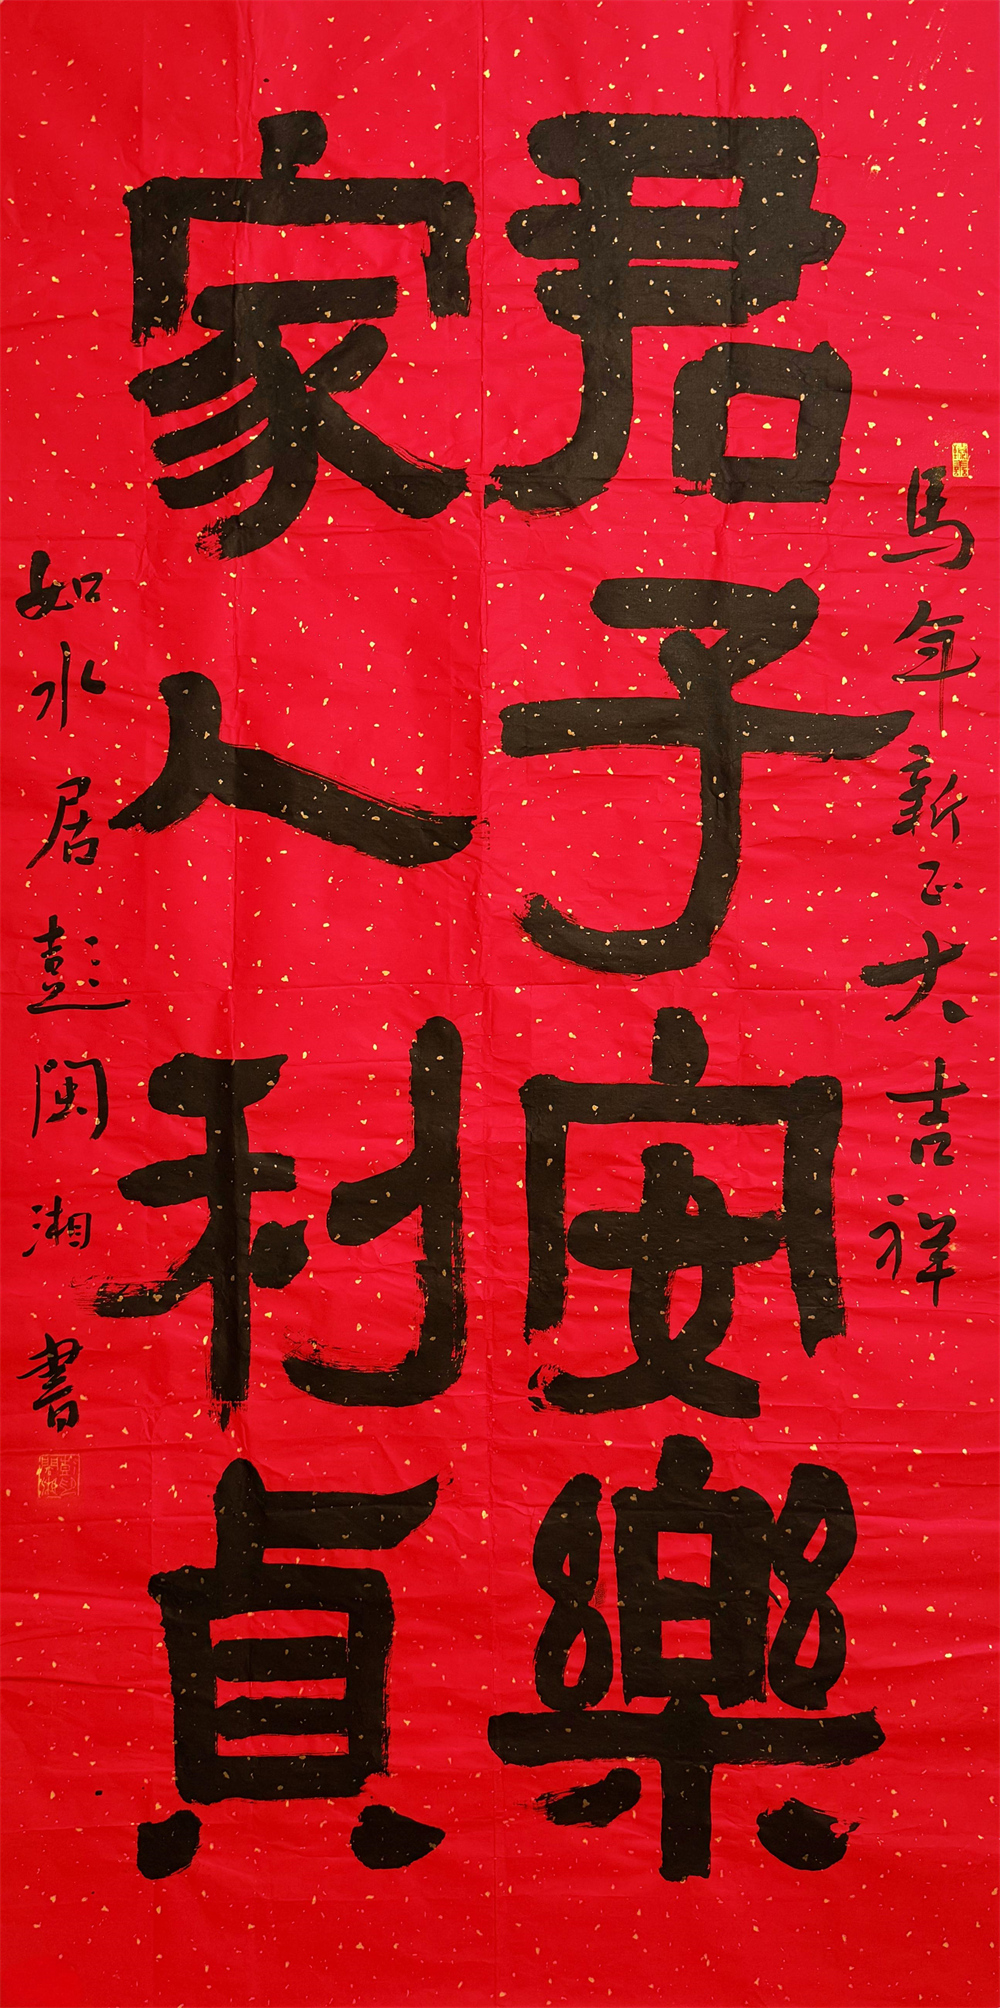 馬年新正大吉祥
君子安樂
家人利貞
如水居彭閩湘書